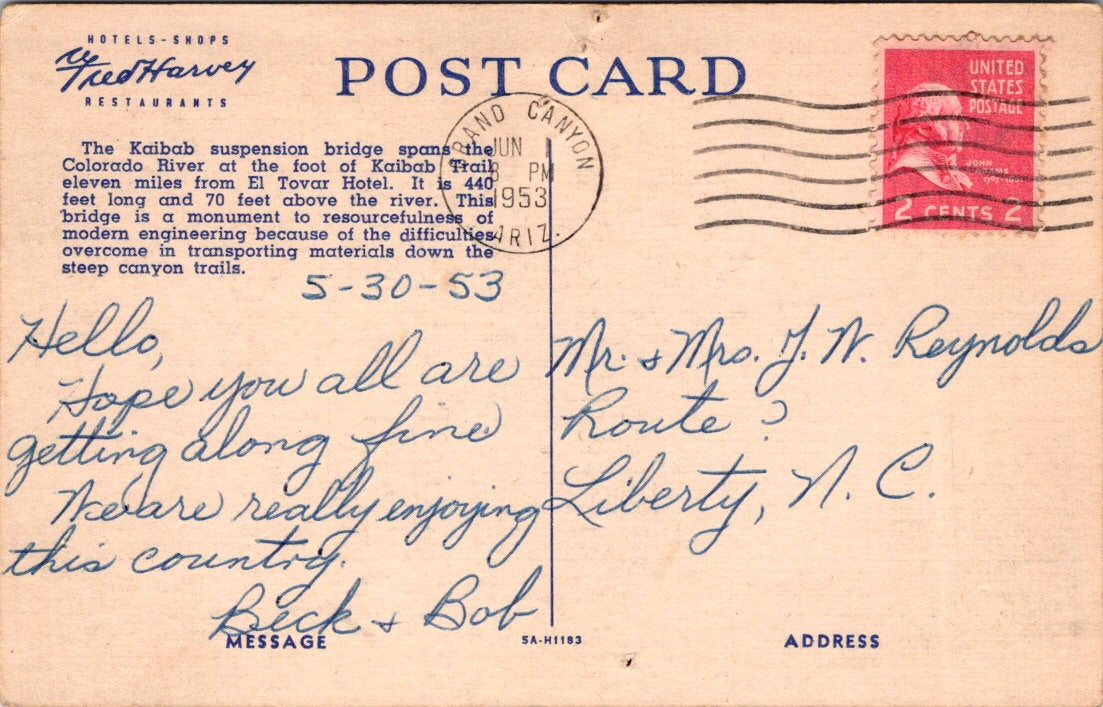 HOTELS-SHOPS
Fred Harvey
RESTAURANTS
POST CARD
The Kaibab suspension bridge spans the
Colorado River at the foot of Kaibab Trail
eleven miles from El Tovar Hotel. It is 440
feet long and 70 feet above the river. This
bridge is a monument to resourcefulness of
modern engineering because of the difficulties
overcome in transporting materials down the
steep canyon trails.
GRAND CANYON
JUN 1
8 PM
1953
ARIZ.
UNITED
STATES
POSTAGE
JOHN
2 CENTS 2
5-30-53
Hello,
Hope you all are
getting along fine
We are really enjoying
this country.
Beck & Bob
Mr. & Mrs. J. W. Reynolds
Route ?
Liberty, N. C.
MESSAGE
5A-H1183
ADDRESS